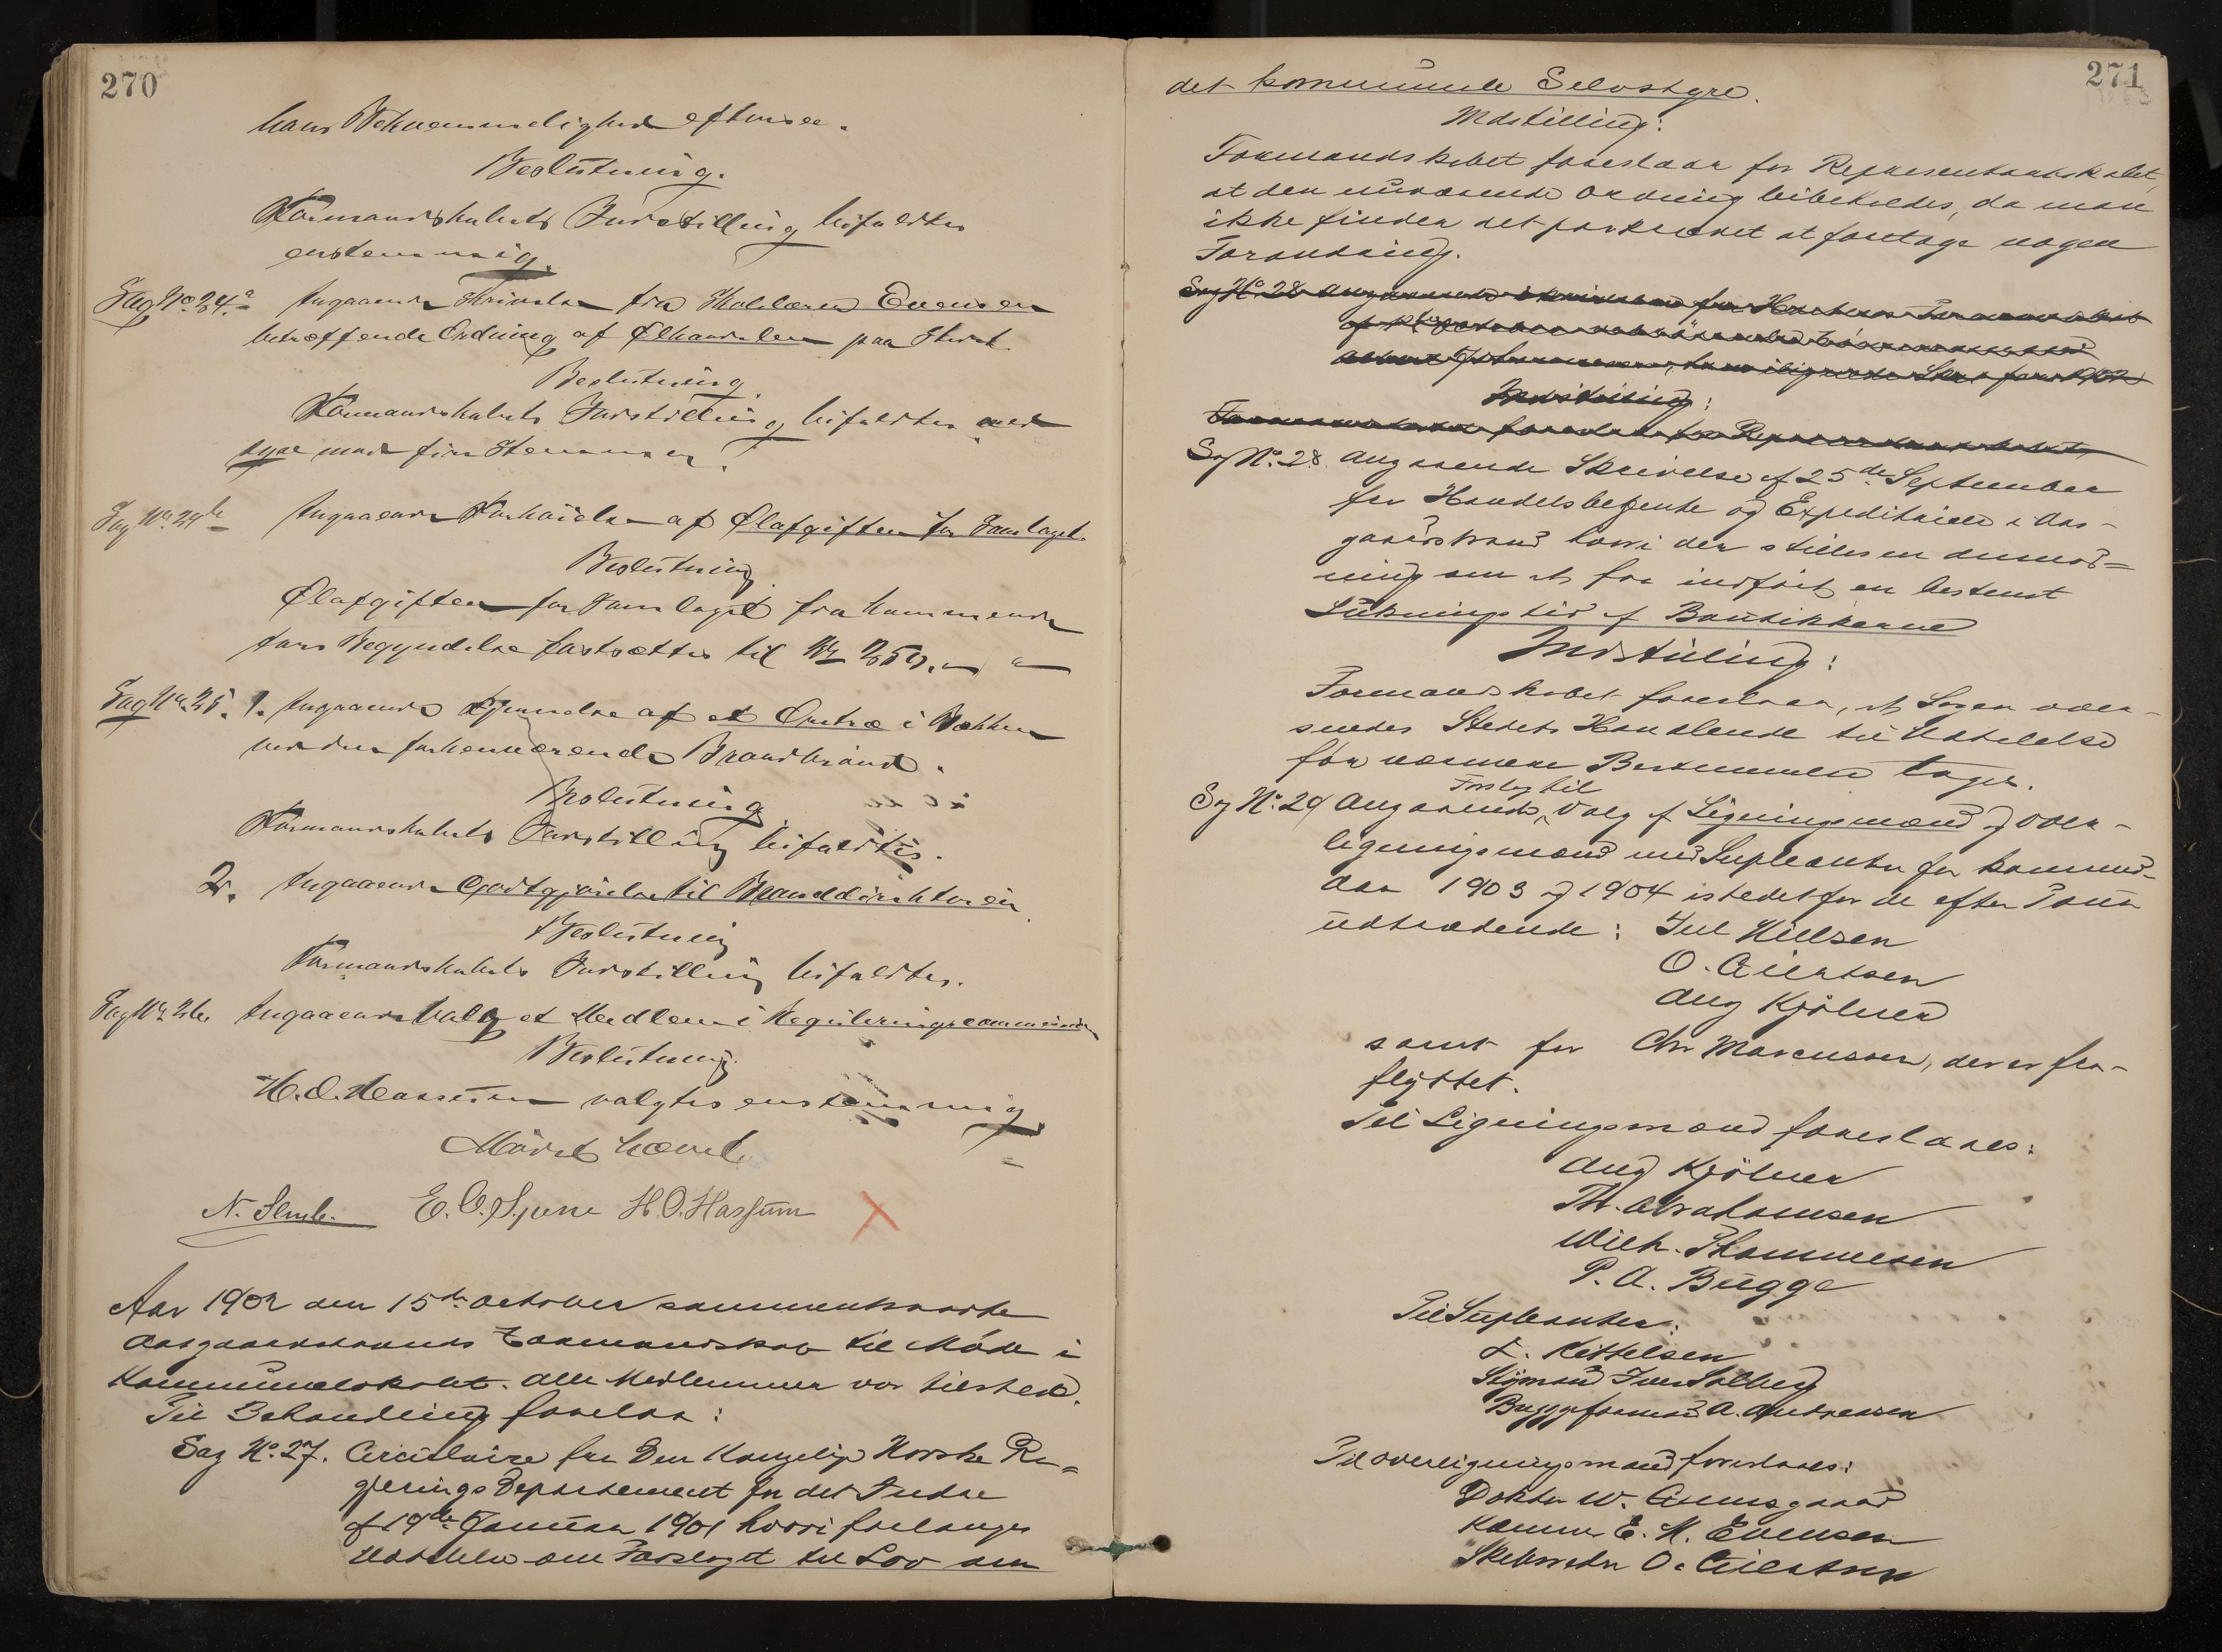 270
hans Bekvemmelighed eftersee.
Beslutning.
Formandskabets Indstilling bifaldtes
enstemmig.
Sag No 24a Angaaende Skrivelse fra Skolelærer Evensen
betræffende Ordning af Ølhandelen paa Stedet
Beslutning
Formandskabets Indstilling bifaldtes med
syv mod fire Stemmer.
Sag No 24b Angaaende Forhøielse af Ølafgiften for Samlaget.
Beslutning
Ølafgiften for Samlaget fra kommende
Aars Begyndelse fastsættes til Kr 250.
Sag No 25. 1. Angaaende af et Oretræ i Bakken
ved den forhenværende Brandbrønd.
Beslutning
Formandskabets Indstilling bifaldtes.
2. Angaaende Godtgjørelse til Branddirektøren
Beslutning
Formandskabets Indstilling bifaldtes.
Sag No 26. Angaaende Valg et Medlem i Reguleringscommission
Beslutning.
H.O. Hassum valgtes enstemmig.
N. E. O. H.O. Hassum
Aar 1902 den 15de October sammentraadte
Aasgaardstrands Formandskab til Møde i
Kommunelokalet. Alle Medlemmer var tilstede.
Til Behandling forelaa:
Sag No. 27. Circulaire fra Den Kongelige Norske Re-
gjerings Departement for det Indre
af 19de Januar 1901 hvori forlanges
Udtalelse om Forslaget til Lov om
271
det kommunale Selvstyre.
Indstilling:
Formandskabet foreslaar for Repræsentantskabet,
at den nuværende Ordning bibeholdes, da man
ikke finder det paakrævet at foretage nogen
Forandring.
Sag No. 28 angaaende Skrivelse fra
Indstilling:
Formandskabet foreslaar for Repræsentantskabet,
Sag No. 28. Angaaende Skrivelse af 25de September
fra Handelsbetjente og Expeditricer i Aas-
gaardstrand hvori der stilles en Anmod-
ning om at faa indført en bestemt
Lukningstid af Boutikkerne
Indstilling:
Formandskabet foreslaar, at Sagen over-
sendes Stedets Handlende til Udtalelse
før nærmere Bestemmelse tages.
Forslag til
Sag No. 29 Angaaende Valg af Ligningsmænd og Over-
ligningsmænd med Supleanter for kommend-
Aar 1903 og 1904 istedetfor de efter Tour
udtrædende: Jul Nillsen
O. Eilertsen
Aug Kjølner
samt for Chr Marcussen, der er fra-
flyttet.
Til Ligningsmænd foreslaaes:
Aug Kjølner
Th. Abrahamsen
Wilh. Thommesen
P. A. Bugge
Til Supleanter:
L. Kettelsen
Styrmand Iver Solberg
Byggeformand A. Andreasen
Til Overligningsmænd foreslaaes:
Doktor W.
E. M. Evensen
Skibsreder O. Eilertsen